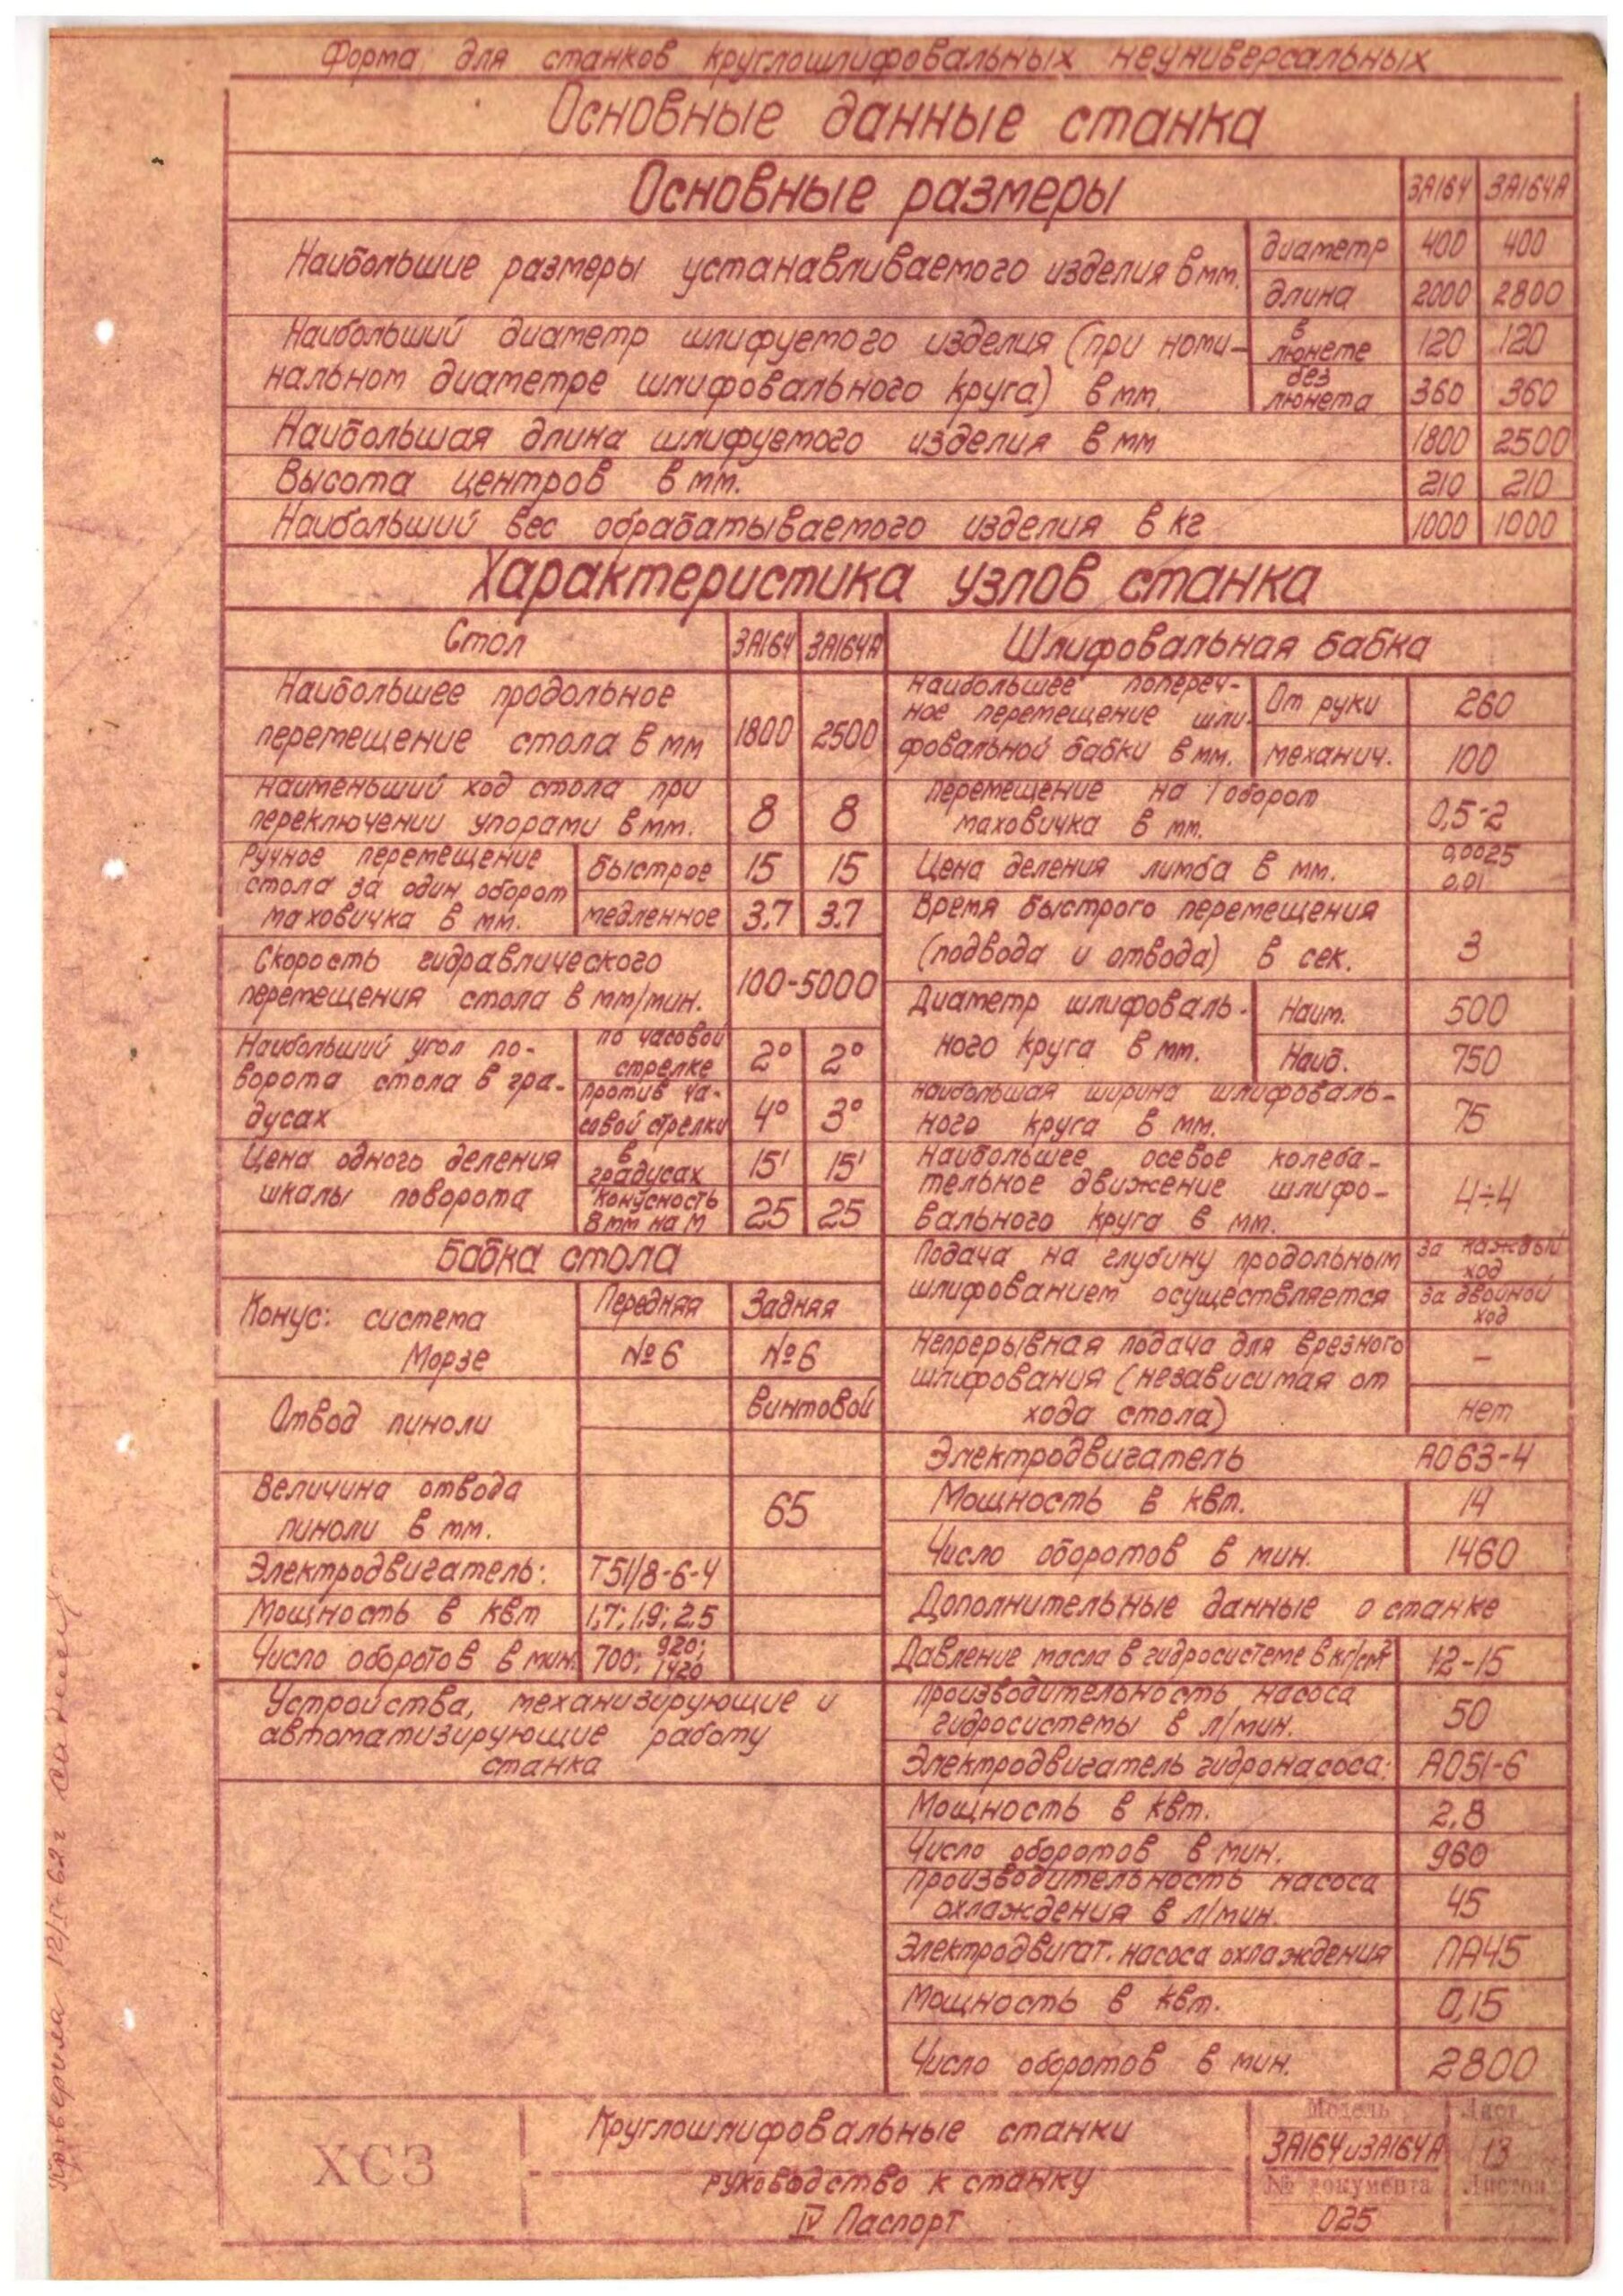 Форма для станков круглошлифовальных неуниверсальных
Основные данные станка
Основные размеры 3А164 3А164А
Наибольшие размеры устанавливаемого изделия в мм. диаметр 400 400
длина 2000 2800
Наибольший диаметр шлифуемого изделия (при номи- в люнете 120 120
нальном диаметре шлифовального круга) в мм. без люнета 360 360
Наибольшая длина шлифуемого изделия в мм 1800 2500
Высота центров в мм. 210 210
Наибольший вес обрабатываемого изделия в кг 1000 1000
Характеристика узлов станка
Стол 3А164 3А164А
Наибольшее продольное
перемещение стола в мм 1800 2500
Наименьший ход стола при
переключении упорами в мм. 8 8
Ручное перемещение
стола за один оборот
маховичка в мм.
быстрое 15 15
медленное 3,7 3,7
Скорость гидравлического
перемещения стола в мм/мин. 100-5000
Наибольший угол по-
ворота стола в гра-
дусах
по часовой
стрелке 2° 2°
против ча-
совой стрелки 4° 3°
Цена одного деления
шкалы поворота
в
градусах 15' 15'
Конусность
в мм на м 25 25
Бабка стола
Конус: система
Морзе
Передняя Задняя
№6 №6
Отвод пиноли винтовой
Величина отвода
пиноли в мм. 65
Электродвигатель: Т51/8-6-4
Мощность в квт 1,7; 1,9; 2,5
Число оборотов в мин. 700; 920;
1420
Устройства, механизирующие и
автоматизирующие работу
станка
Шлифовальная бабка
Наибольшее попереч-
ное перемещение шли-
фовальной бабки в мм.
От руки 260
механич. 100
Перемещение на 1 оборот
маховичка в мм. 0,5-2
Цена деления лимба в мм. 0,0025
0,01
Время быстрого перемещения
(подвода и отвода) в сек. 3
Диаметр шлифоваль-
ного круга в мм.
Наим. 500
Наиб. 750
Наибольшая ширина шлифоваль-
ного круга в мм. 75
Наибольшее осевое колеба-
тельное движение шлифо-
вального круга в мм. 4÷4
Подача на глубину продольным
шлифованием осуществляется
за каждый
ход
за двойной
ход
Непрерывная подача для врезного
шлифования (независимая от
хода стола)
–
нет
Электродвигатель АО63-4
Мощность в квт. 14
Число оборотов в мин. 1460
Дополнительные данные о станке
Давление масла в гидросистеме в кг/см² 12-15
Производительность насоса
гидросистемы в л/мин. 50
Электродвигатель гидронасоса: АО51-6
Мощность в квт. 2,8
Число оборотов в мин. 960
Производительность насоса
охлаждения в л/мин. 45
Электродвигат. насоса охлаждения ПА45
Мощность в квт. 0,15
Число оборотов в мин. 2800
ХСЗ
Круглошлифовальные станки
руководство к станку
IV Паспорт
Модель
3А164 и 3А164А
№ документа
025
Лист
13
Листов
Проверила